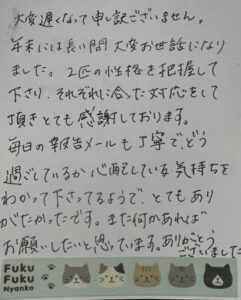 大変遅くなって申し訳ございません。
年末には長い間大変お世話になり
ました。2匹の性格を把握して
下さり、それぞれに合った対応をして
頂きとても感謝しております。
毎日の報告メールも丁寧で、どう
過ごしているか心配している気持ちを
わかって下さってるようで、とてもあり
がたかったです。また何かあれば
お願いしたいと思っています。ありがとう
ございました
Fuku
Fuku
Nyanko